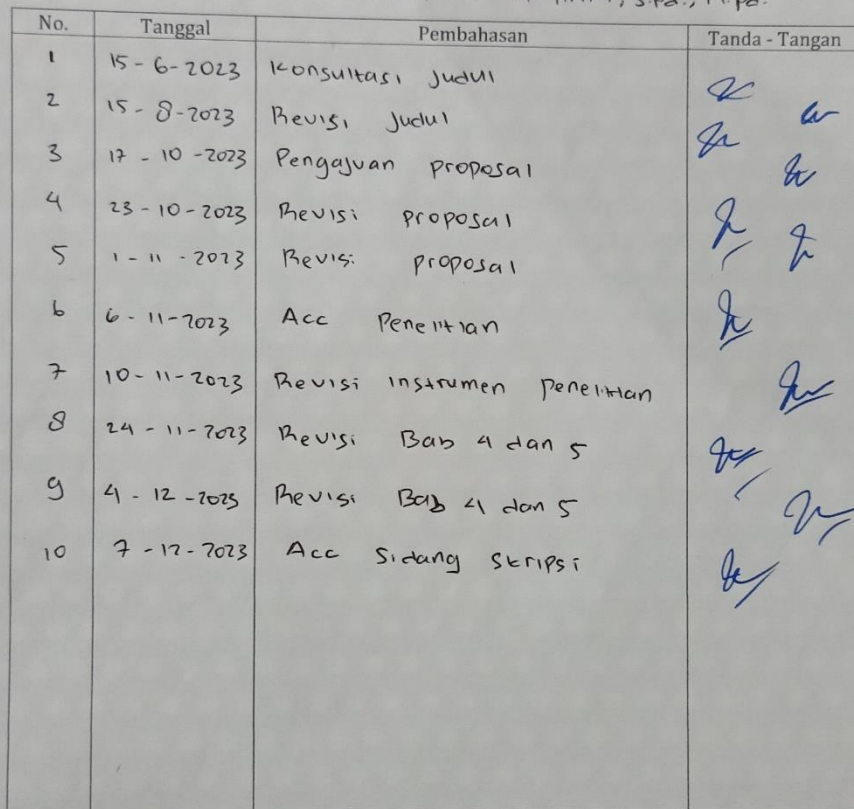 S.Pd., M.Pd.
No. Tanggal Pembahasan Tanda - Tangan
1 15 - 6 - 2023 Konsultasi Judul
2 15 - 8 - 2023 Revisi Judul
3 17 - 10 - 2023 Pengajuan proposal
4 23 - 10 - 2023 Revisi proposal
5 1 - 11 - 2023 Revisi proposal
6 6 - 11 - 2023 Acc Penelitian
7 10 - 11 - 2023 Revisi instrumen penelitian
8 24 - 11 - 2023 Revisi Bab 4 dan 5
9 4 - 12 - 2023 Revisi Bab 4 dan 5
10 7 - 12 - 2023 Acc Sidang Skripsi